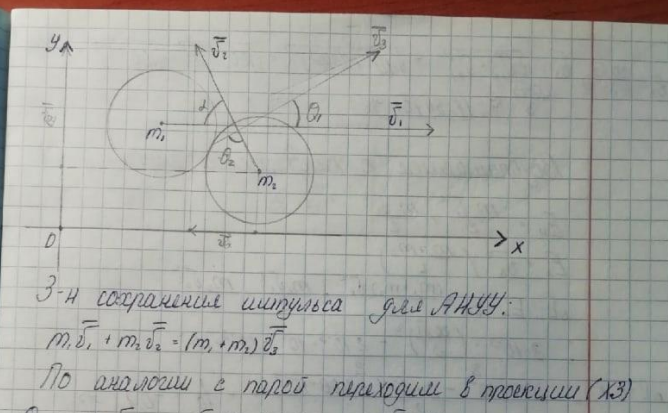 y
v̅₂
v̅₃
α
θ₁
v̅₁
m₁
θ₂
m₂
0
x
З-н сохранения импульса для АНУУ:
m₁v̅₁ + m₂v̅₂ = (m₁+m₂)v̅₃
По аналогии с парой переходим в проекции (ХЗ)